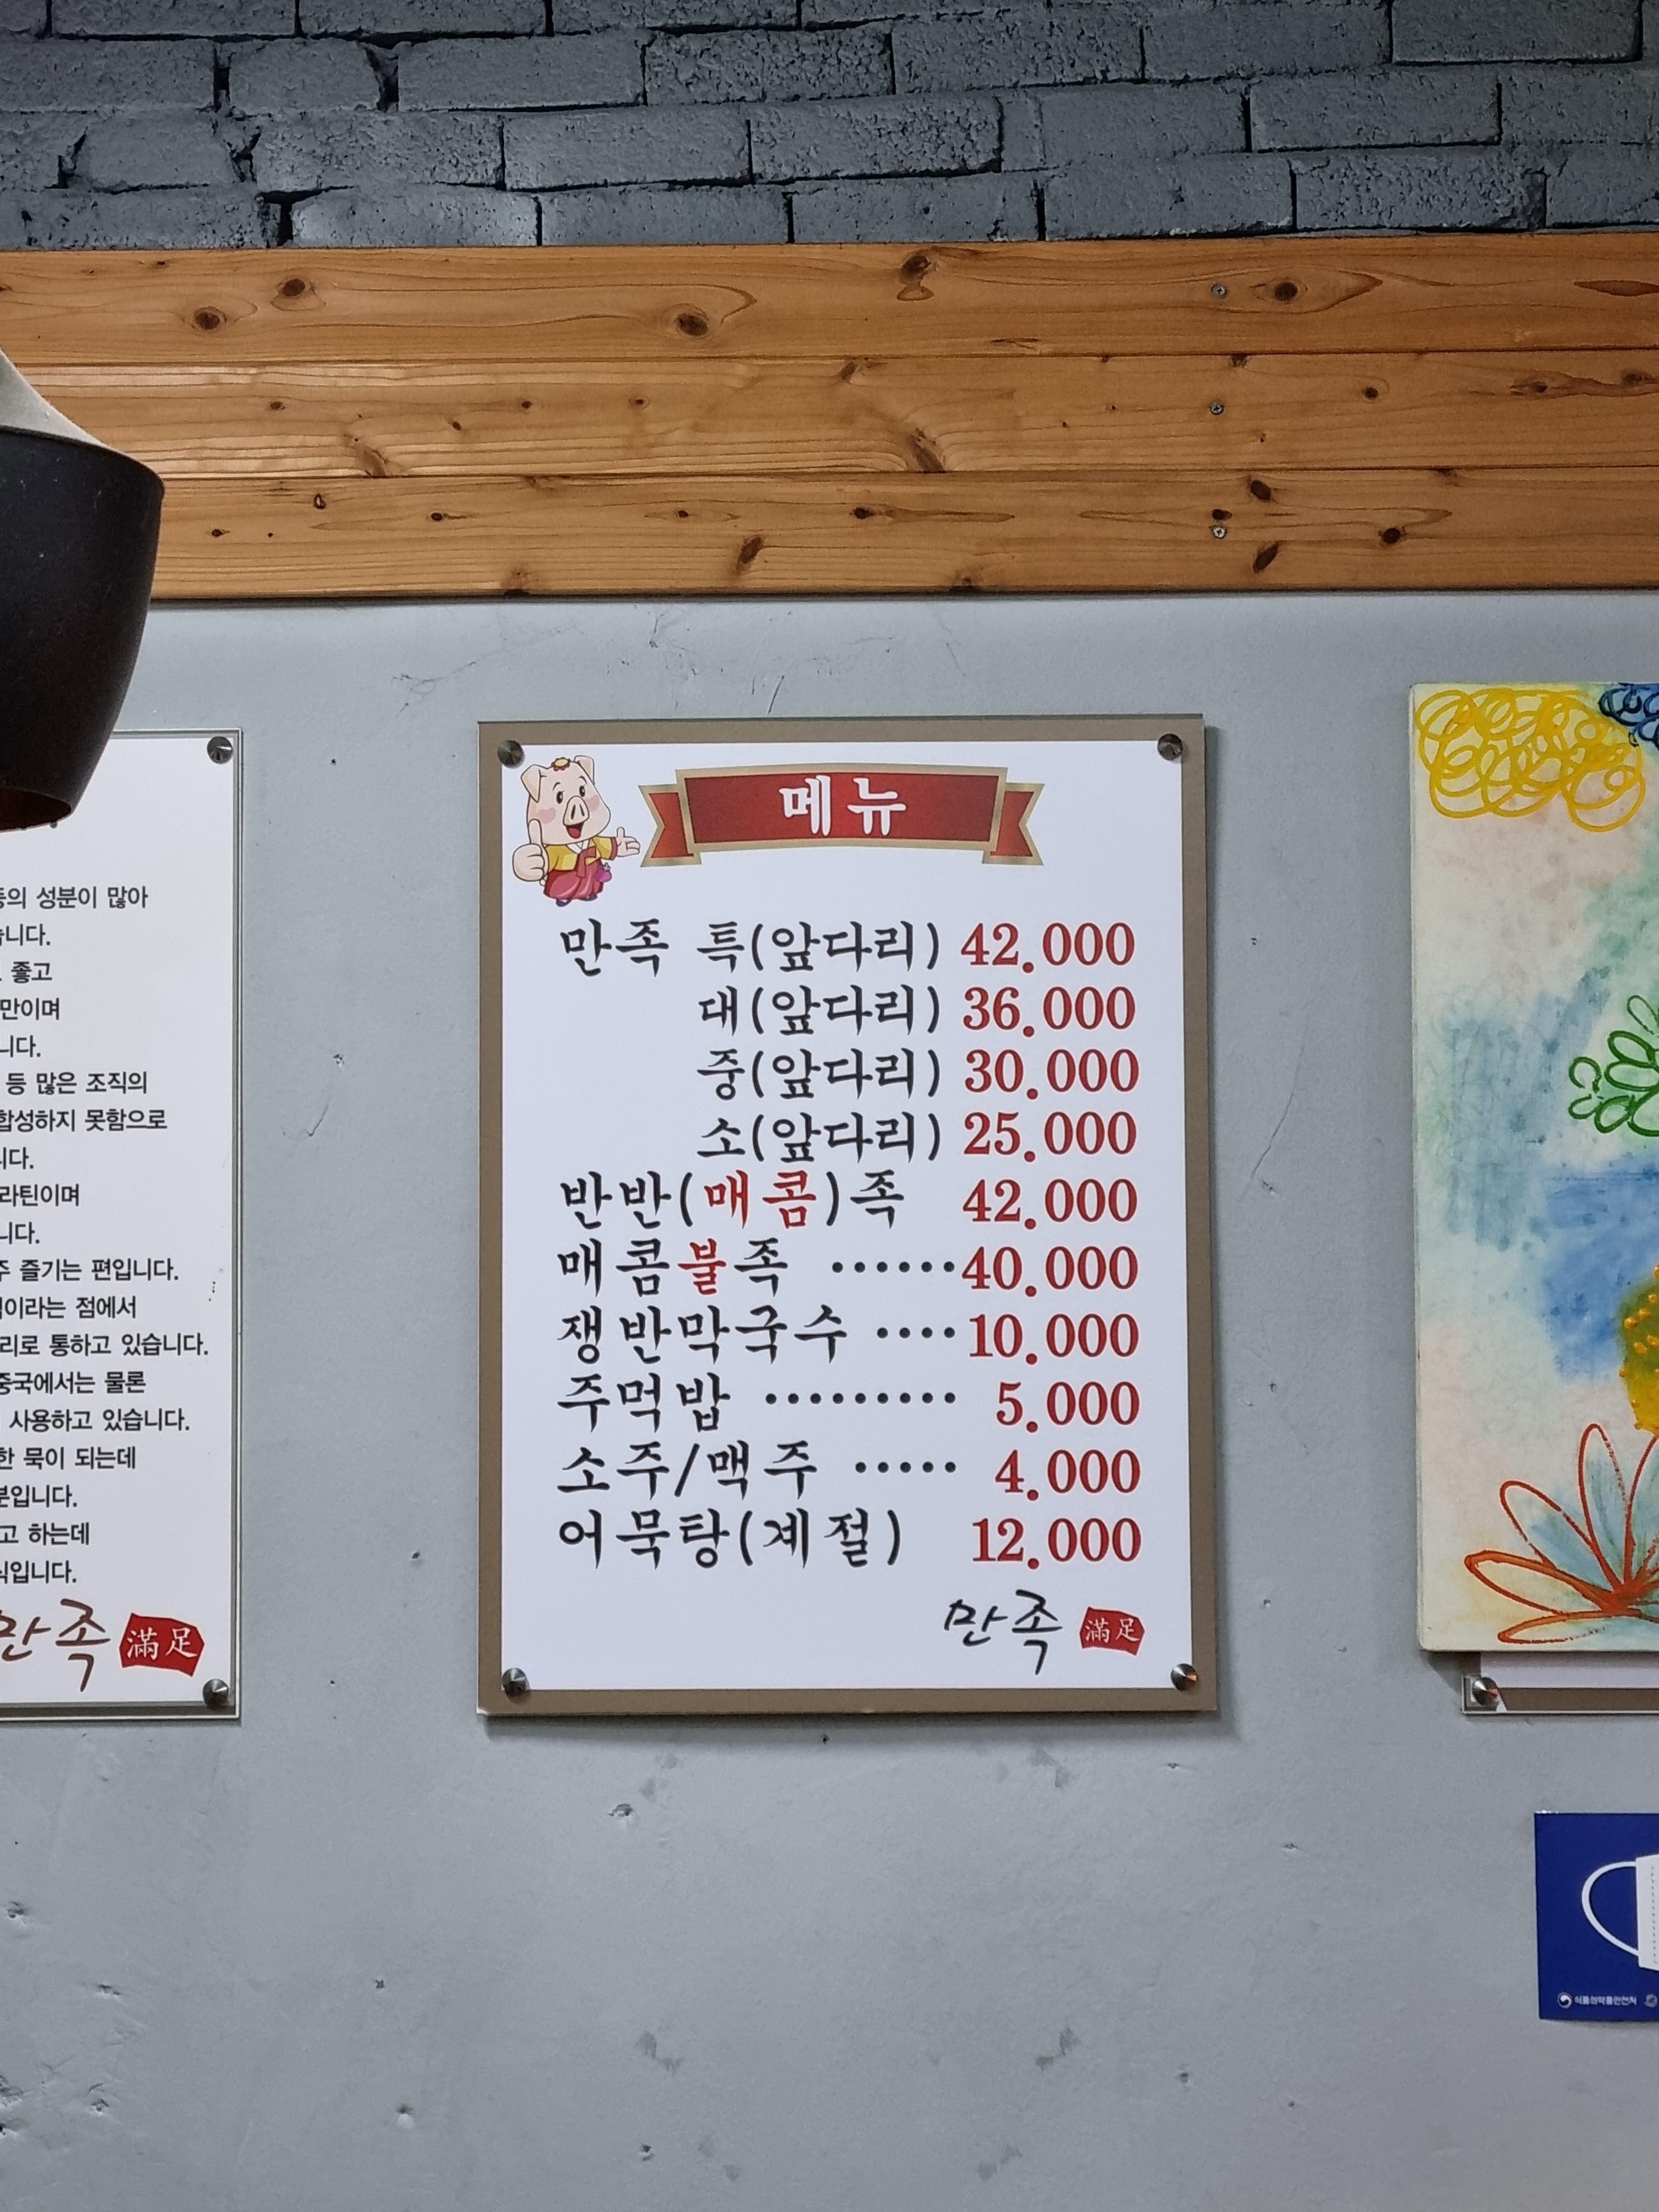 메뉴
만족 특(앞다리) 42.000
대(앞다리) 36.000
중(앞다리) 30.000
소(앞다리) 25.000
반반(매콤)족 42.000
매콤불족 ······40.000
쟁반막국수 ····10.000
주먹밥 ········· 5.000
소주/맥주 ····· 4.000
어묵탕(계절) 12.000
만족 滿足
등의 성분이 많아
습니다.
좋고
만이며
니다.
등 많은 조직의
합성하지 못함으로
니다.
라틴이며
니다.
주 즐기는 편입니다.
이라는 점에서
리로 통하고 있습니다.
중국에서는 물론
사용하고 있습니다.
한 묵이 되는데
분입니다.
고 하는데
식입니다.
만족 滿足
식품의약품안전처